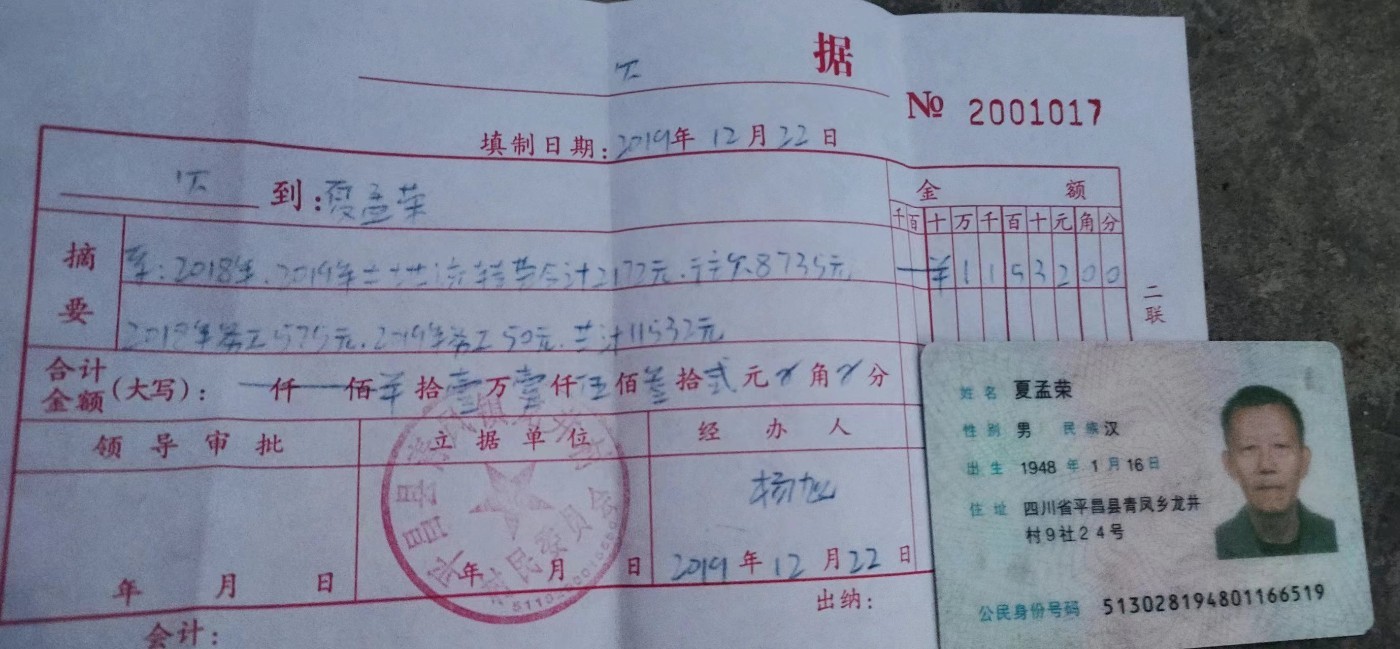 欠 据
№ 2001017
填制日期：2019年12月22日
欠 到：夏孟荣
金 额
千百十万千百十元角分
摘要
2018年、2019年土地流转费合计2172元.
¥1153200
2018年务工575元.2019年务工50元.共计11532元
二联
合计金额（大写）： 仟 佰 ¥ 拾壹万壹仟伍佰叁拾贰元 角 分
领导审批 立据单位 经办人
杨旭
年 月 日 年 月 日 2019年12月22日
村民委员会
会计： 出纳：
姓名 夏孟荣
性别 男 民族 汉
出生 1948年1月16日
住址 四川省平昌县青凤乡龙井
村9社24号
公民身份号码 513028194801166519